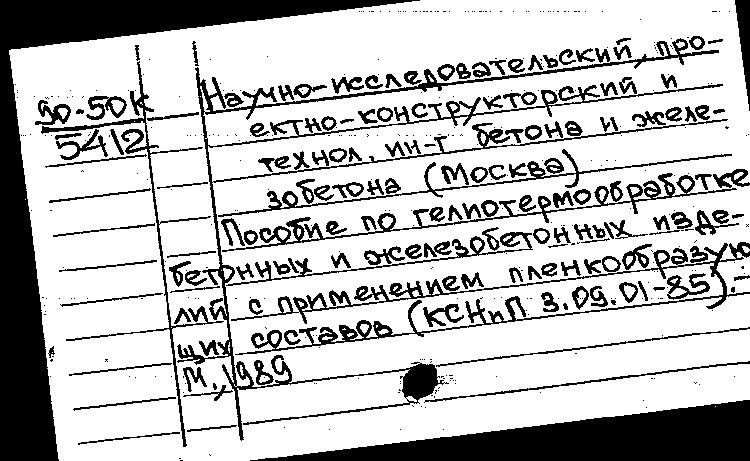 90-50К
5412
Научно-исследовательский, про-
ектно-конструкторский и
технол. ин-т бетона и желе-
зобетона (Москва)
Пособие по гелиотермообработке
бетонных и железобетонных изде-
лий с применением пленкообразую
щих составов (кСНиП 3.09.01-85).-
М., 1989